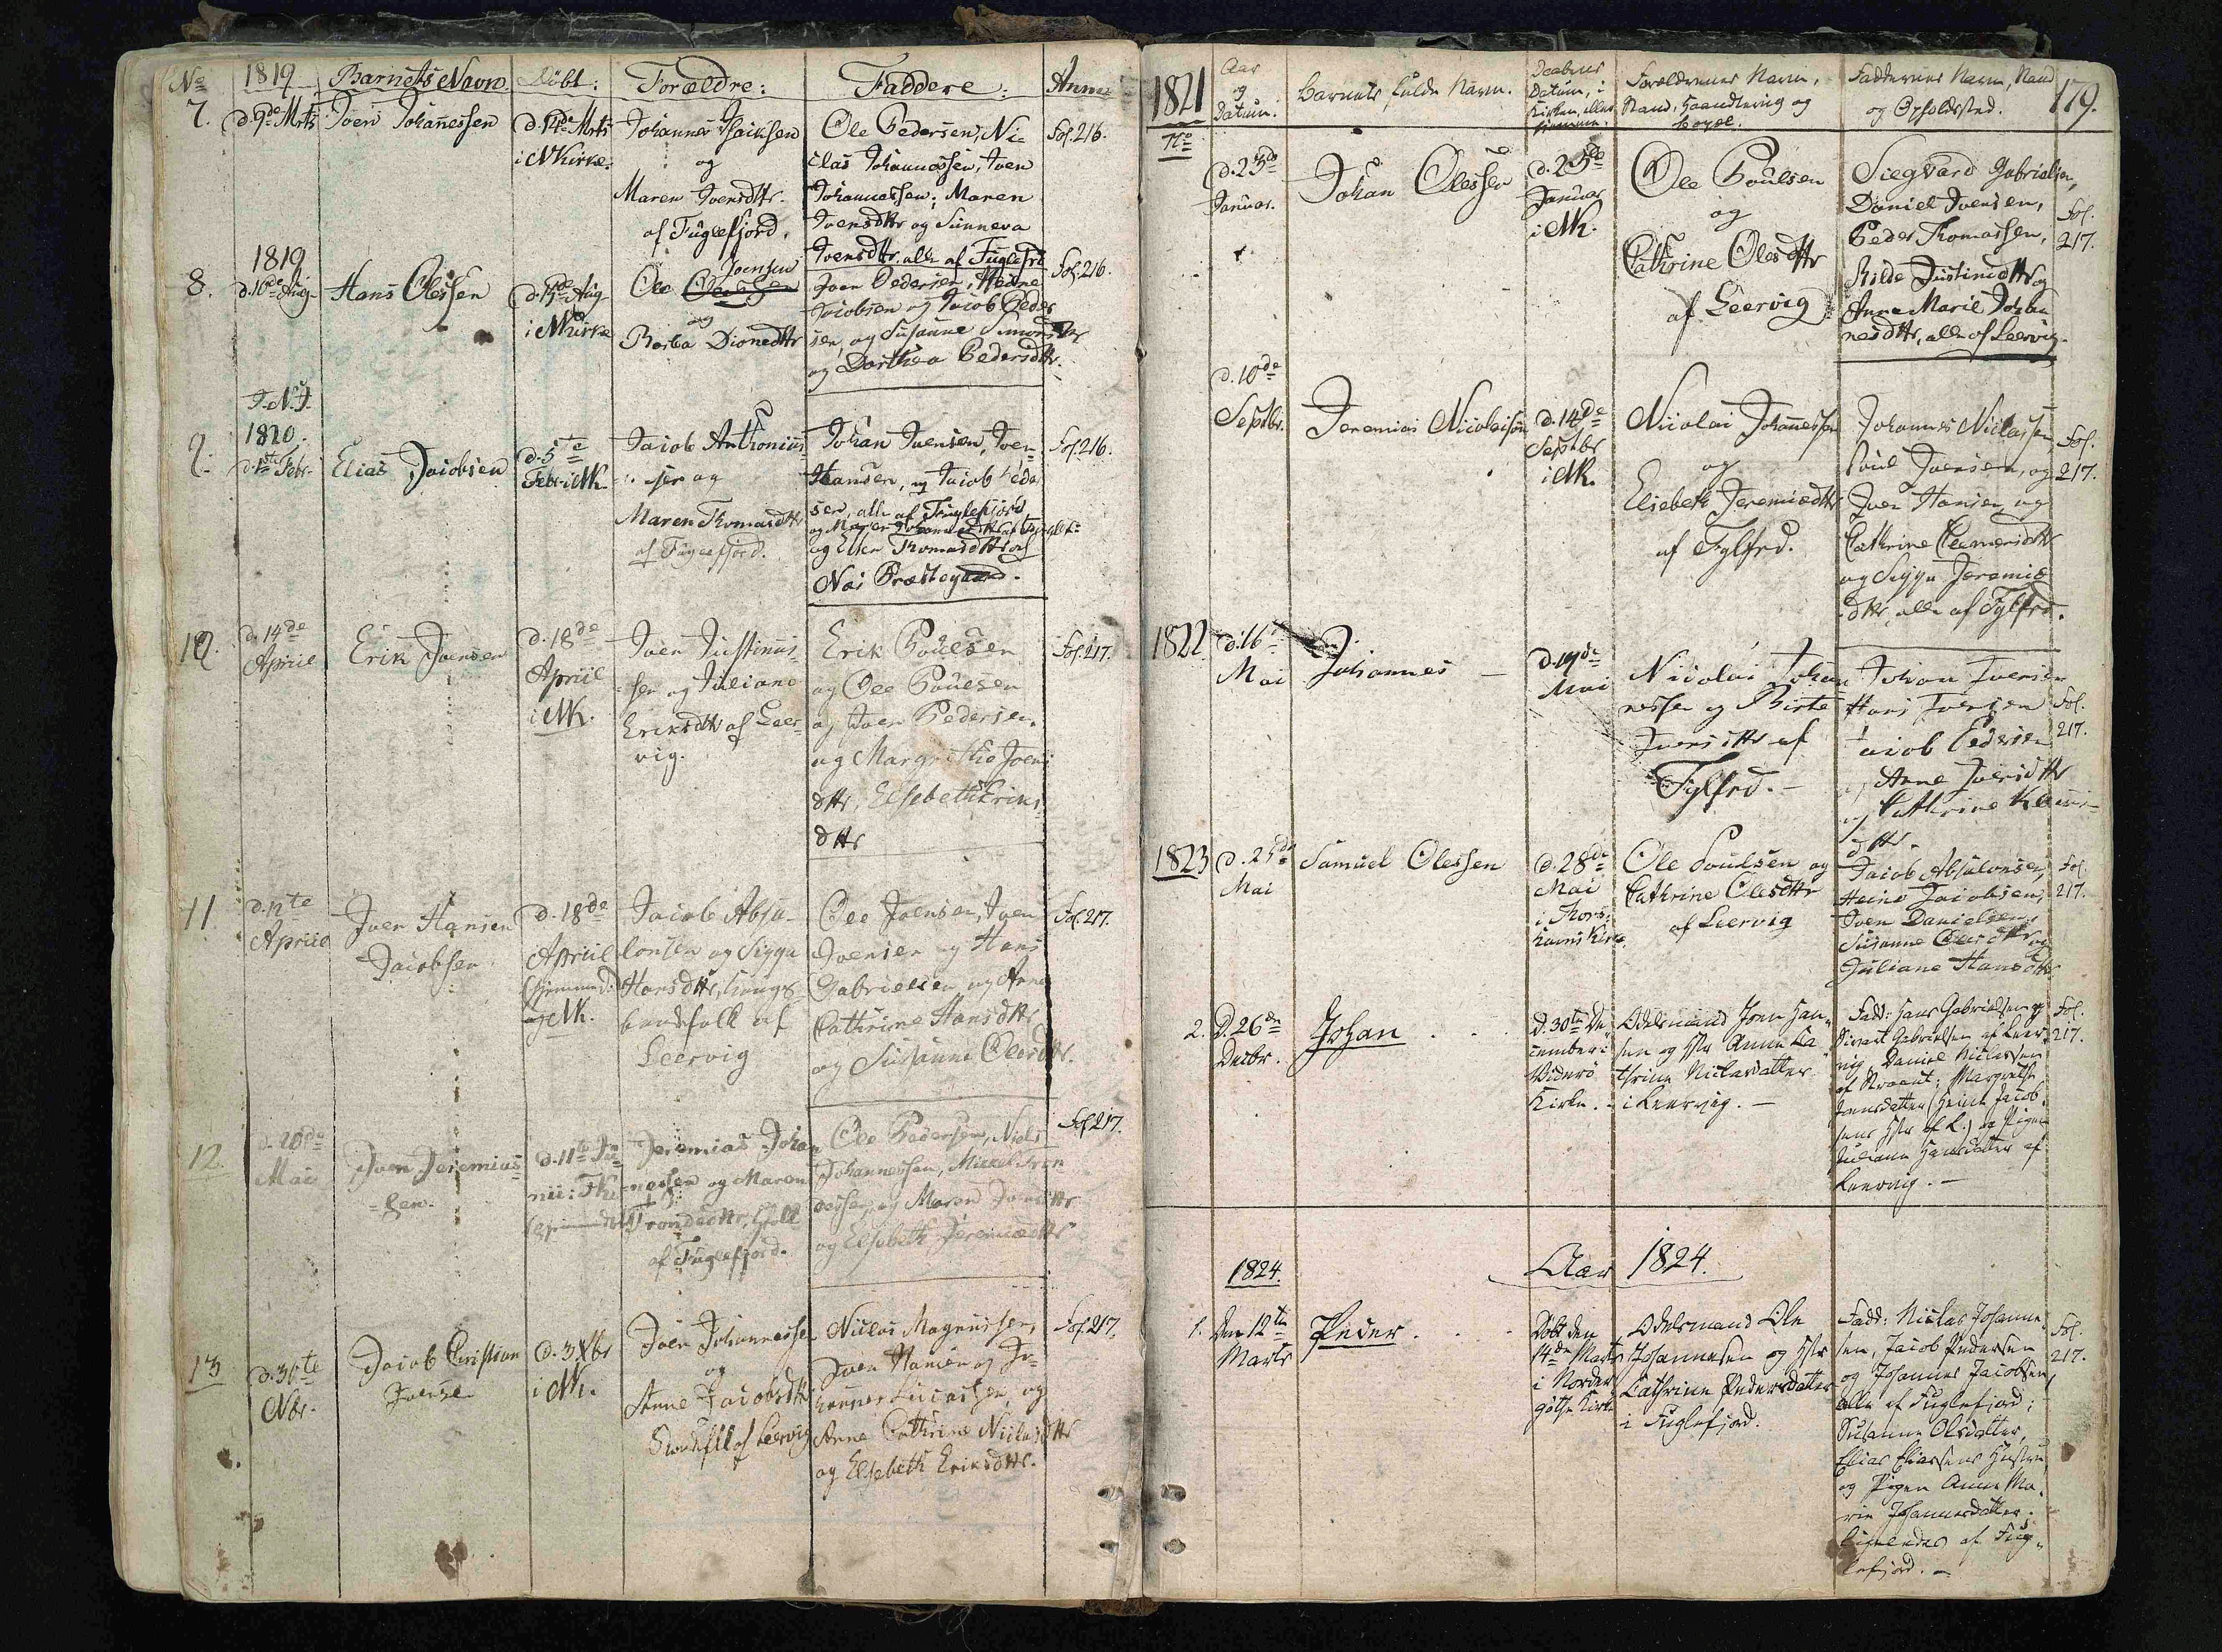 No 1819 Barnets Navn Døbt: Forældre: Faddere: Anm:
7. d. 9de Mrts Joen Johannessen d. 14de Mrts Johannes
i NKirke. og
Maren Joensdttr.
af Fuglefjord.
Ole Pedersen, Ni-
clas Johannessen, Joen
Johannessen; Maren
Joensdttr og Sunneva
Joensdttr, alle af Fuglefrd
Fol. 216.
1819
8. d. 10de Aug Hans Olessen d. 15de Aug
i NKirke
Ole Joensen
og
Barba Dionedttr
Joen Pedersen, Heine
Jacobsen og Jacob Peder
sen, og Susanne Simonsdttr
og Dorthea Pedersdttr.
Fol. 216.
J. N. J.
1820.
9. d. 1ste Febr. Elias Jacobsen d. 5te
Febr. i NK.
Jacob Anthonius
sen og
Maren Thomasdttr
af Fuglefjord.
Johan Joensen, Joen
Hansen, og Jacob Peder
sen, alle af Fuglefjord
og Ellen Thomasdttr af
Næs Præstegaard.
Fol. 216.
10. d. 14de
Apriil
Erik Joensen
d. 18de
Apriil
i NK.
Joen Justinus-
sen og Juliane
Eriksdttr af Leer-
vig.
Erik Poulsen
og Ole Poulsen
og Joen Pedersen.
og Margrethe Joens
dttr, Elsebeth Eriks
dttr
Fol. 217.
11. d. 12te
Apriil
Joen Hansen
Jacobsen
d. 18de
Apriil
(hjemmed.)
og NK.
Jacob Absa-
lonsen og Sigga
Hansdttr, Konges-
bondfolk af
Leervig
Ole Joensen, Joen
Joensen og Hans
Gabrielsen og Anne
Cathrine Hansdttr
og Susanne Olesdttr.
Fol. 217.
12. d. 20de
Mai
Joen Jeremias
=sen.
d. 11te Ju-
nii i FKi
Jeremias Johan
nessen og Maren
Trondesdttr, Hfolk
af Fuglefjord.
Ole Pedersen, Niels
Johannessen, Mikkel Tron
dessen, og Maren Joensdttr
og Elsebeth Jeremiædttr
Fol. 217.
13 d. 30te
Nbr.
Jacob Christian
Joensen
d. 3 Xbr
i NK.
Joen Johannessen
og
Anne Jacobsdttr
af Leervig
Niclas Magnussen,
Joen Hansen og Jo-
hannes Lucassen, og
Anne Cathrine Niclasdttr
og Elsebeth Eriksdttr.
Fol. 217.
1821
No
Aar
og
Datum.
Barnets fulde Navn.
Daabens
Datum, i
Kirken, eller
hjemme.
Forældrenes Navn,
Stand, Haandtering og
Bopæl.
Faddernes Navn, Stand
og Opholdssted.
179.
d. 23de
Januar.
Johan Olessen
d. 25de
Januar
i NK.
Ole Poulsen
og
Cathrine Olesdttr
af Leervig
Siegvard Gabrielsen,
Daniel Joensen,
Peder Thomassen,
Hilde Justinidttr og
Anna Marie Johan
nesdttr, alle af Leervig.
Fol.
217.
d. 10de
Septbr.
Jeremias Nicolaisen
d. 14de
Septbr
i NK.
Nicolai Johannessen
og
Elsebeth Jeremiædttr
af Fglfrd.
Johannes Niclassen,
Poul Joensen, og
Joen Hansen og
Cathrine Clemensdttr
og Sigga Jeremiæ
dttr, alle af Fglfrd.
Fol.
217.
1822 d. 16de
Mai
Johannes -
d. 19de
Mai
Nicolai Johan
nessen og Birte
Joensdttr af
Fglfrd. -
Johan Joensen
Hans Joensen
Jacob Pedersen
og Anne Joensdttr
og Cathrine Klemens-
dttr.
Fol.
217.
1823 d. 25de
Mai
Samuel Olessen
d. 28de
Mai
i Thors-
havns Kirke.
Ole Poulsen og
Cathrine Olesdttr
af Leervig
Jacob Absalonsen,
Heine Jacobsen,
Joen Danielsen.
Susanne Olesdttr og
Juliane Hansdttr
Fol.
217.
2. D. 26de
Decbr.
Johan
d. 30te De-
cember i
Viderø
Kirke.
Odelsmand Joen Han-
sen og Hstr Anne Ca-
thrine Niclasdatter
i Leervig. -
Fadd: Hans Gabrielsen og
Sivert Gabrielsen af Leer-
vig, Daniel Niclassen
Margrethe
Joensdatter (Heine Jacob-
sens Hstr af L.) og Pigen
Juliane Hansdatter af
Leervig. -
Fol.
217.
1824.
Aar 1824.
1. Den 12te
Marts
Peder
Døbt den
14de Marts
i Norder
Gøthe Kirke
Odelsmand Ole
Johannesen og Hstr
Cathrine Pedersdatter
i Fuglefjord.
Fadd: Niclas Johanne-
sen, Jacob Pedersen
og Johannes Jacobsen
alle af Fuglefjord;
Susanne Olsdatter,
Elias Eliassens Hustru
og Pigen Anne Ma-
rie Johannesdatter,
ligeledes af Fug-
lefjord. -
Fol.
217.